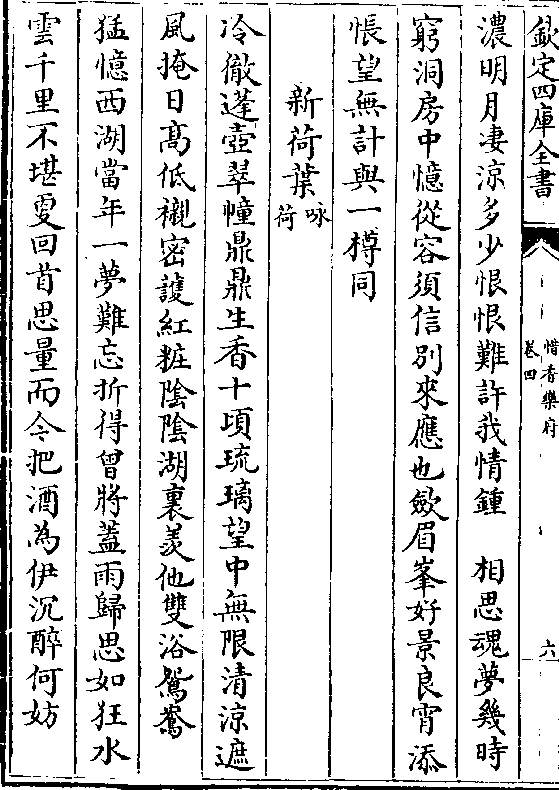 欽定四庫全書
惜香樂府
卷四
六
濃明月凄涼多少恨恨難許我情鍾　相思魂夢幾時
窮洞房中憶從容須信別來應也斂眉峯好景良宵添
悵望無計與一樽同
新荷葉
咏
荷
冷徹蓬壺翠幢鼎鼎生香十頃琉璃望中無限清涼遮
風掩日髙低襯密護紅粧陰陰湖裏羨他雙浴鴛鴦
猛憶西湖當年一夢難忘折得曾將蓋雨歸思如狂水
雲千里不堪更回首思量而今把酒為伊沉醉何妨